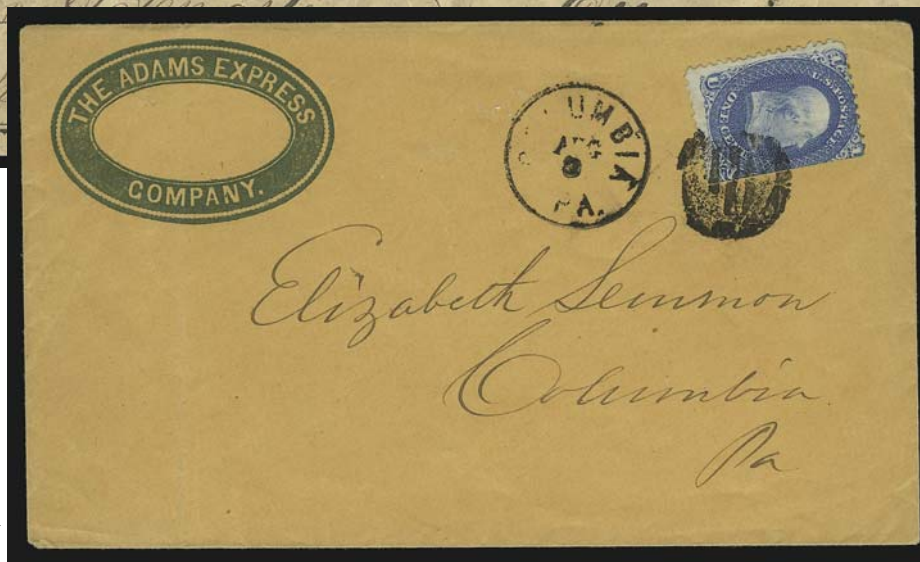 THE ADAMS EXPRESS
COMPANY.
COLUMBIA
8
PA.
U.S. POSTAGE
Elizabeth Semmon
Columbia
Pa